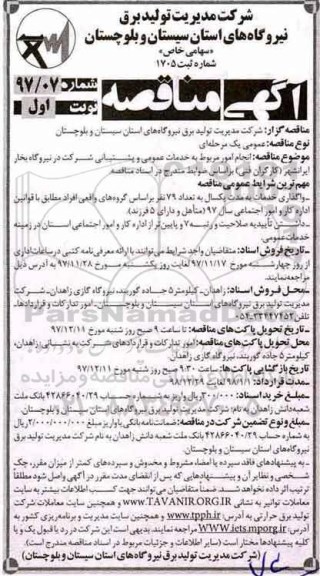 شرکت مدیریت تولید برق
نیروگاه‌های استان سیستان و بلوچستان
«سهامی خاص»
شماره ثبت ۱۷۰۵
آگهی مناقصه
شماره ۹۷/۰۷
نوبت اول
مناقصه گزار: شرکت مدیریت تولید برق نیروگاه‌های استان سیستان و بلوچستان
نوع مناقصه: عمومی یک مرحله‌ای
موضوع مناقصه: انجام امور مربوط به خدمات عمومی و پشتیبانی شرکت در نیروگاه بخار
ایرانشهر (کارگران فنی) براساس ضوابط مندرج در اسناد مناقصه.
مهم ترین شرایط عمومی مناقصه
-واگذاری خدمات به مدت یکسال به تعداد ۷۹ نفر براساس گروه‌های واقعی افراد مطابق با قوانین
اداره کار و امور اجتماعی سال ۹۷ (متأهل و دارای ۵ فرزند).
- داشتن تأییدیه صلاحیت و رتبه ۷ و پایین‌تر از اداره کار و امور اجتماعی استان در زمینه
خدمات عمومی.
-تاریخ فروش اسناد: متقاضیان واجد شرایط می‌توانند با ارائه معرفی‌نامه کتبی در ساعات اداری
از روز چهارشنبه مورخ ۹۷/۱۱/۱۷ لغایت روز یکشنبه مورخ به آدرس ذیل
مراجعه نمایند.
-محل فروش اسناد: زاهدان- کیلومتر ۵ جاده گوربند، نیروگاه گازی زاهدان- شرکت
مدیریت تولید برق نیروگاه‌های استان سیستان و بلوچستان- امور تدارکات و قراردادها.
تلفن ۰۵۴-۳۳۴۴۷۴۵۲
-تاریخ تحویل پاکت‌های مناقصه: تا ساعت ۹ صبح روز شنبه مورخ ۹۷/۱۲/۱۱
محل تحویل پاکت‌های مناقصه: امور تدارکات و قراردادهای شرکت به نشانی زاهدان،
کیلومتر ۵ جاده گوربند، نیروگاه گازی زاهدان
تاریخ بازگشایی پاکت‌ها: ساعت ۹:۳۰ صبح روز شنبه مورخ ۹۷/۱۲/۱۱
-مدت قرارداد: ۹۸/۱/۱ لغایت ۹۸/۱۲/۲۹
-مبلغ خرید اسناد: ریال واریز به شماره حساب بانک ملت
شعبه دانش زاهدان به نام شرکت مدیریت تولید برق نیروگاه‌های استان سیستان و بلوچستان.
-مبلغ و نوع تضمین شرکت در مناقصه: ضمانت‌نامه بانکی یا واریز مبلغ ریال
به شماره حساب بانک ملت شعبه دانش زاهدان به نام شرکت مدیریت تولید برق
نیروگاه‌های استان سیستان و بلوچستان.
- به پیشنهادهای فاقد سپرده یا امضاء، مشروط و مخدوش و سپرده‌های کمتر از میزان مقرر، چک
شخصی و نظایر آن و پیشنهادهایی که پس از انقضای مدت مقرر در آگهی واصل شود مطلقاً
ترتیب اثر داده نخواهد شد. ضمناً متقاضیان می‌توانند جهت کسب اطلاعات بیشتر به سایت
معاملات توانیر به نشانی WWW.TAVANIR.ORG.IR و همچنین سایت معاملات شرکت
تولید برق حرارتی به آدرس: www.tpph.ir و همچنین سایت مدیریت و برنامه‌ریزی کشور به
آدرس WWW.iets.mporg.ir مراجعه نمایند. بدیهی است این شرکت در رد یا قبول یک و یا
کلیه پیشنهادها مختار است (سایر اطلاعات و جزئیات مربوط در اسناد مناقصه مندرج است).
(شرکت مدیریت تولید برق نیروگاه‌های استان سیستان و بلوچستان)